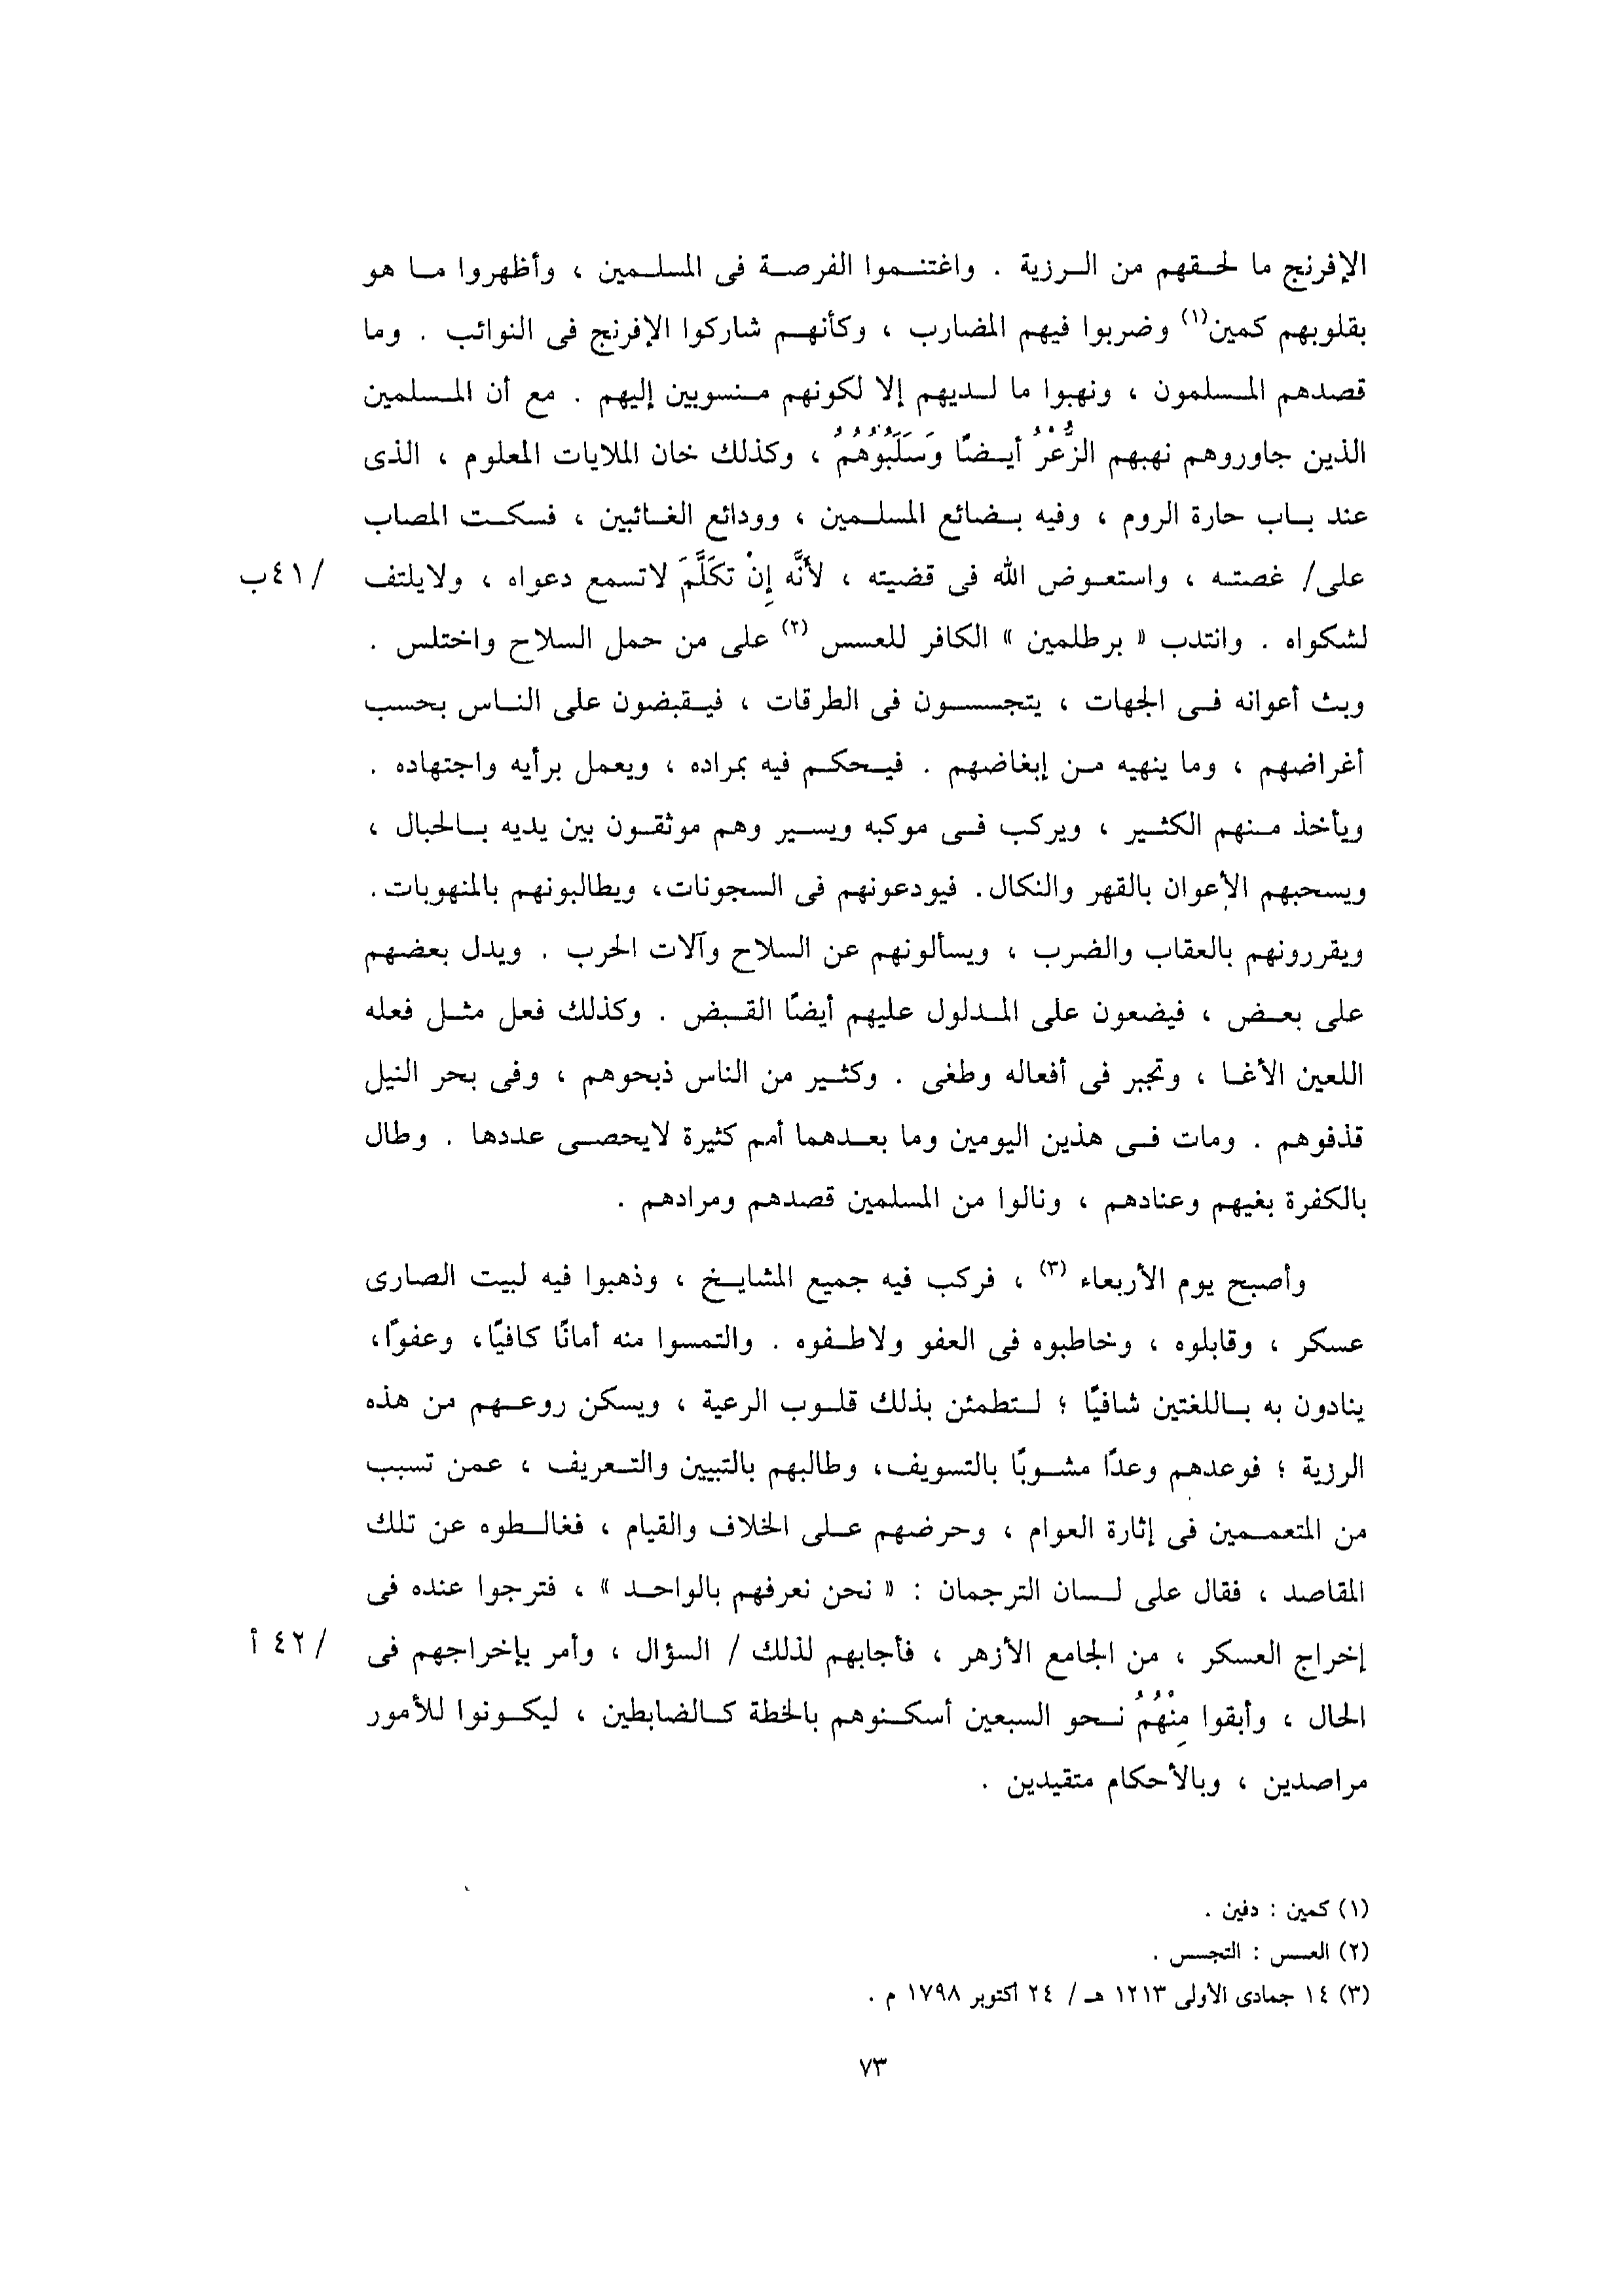 الإفرنج ما لحقهم من الرزية . واغتنموا الفرصة فى المسلمين ، وأظهروا ما هو
بقلوبهم كمين(١) وضربوا فيهم المضارب ، وكأنهم شاركوا الإفرنج فى النوائب . وما
قصدهم المسلمون ، ونهبوا ما لديهم إلا لكونهم منسوبين إليهم . مع أن المسلمين
الذين جاوروهم نهبهم الزُّعْرُ أيضًا وَسَلَبُوُهُمُ ، وكذلك خان الملايات المعلوم ، الذى
عند باب حارة الروم ، وفيه بضائع المسلمين ، وودائع الغائبين ، فسكت المصاب
على/ غصته ، واستعوض الله فى قضيته ، لأَنَّه إِنْ تكَلَّمَ لاتسمع دعواه ، ولايلتف /٤١ب
لشكواه . وانتدب « برطلمين » الكافر للعسس (٢) على من حمل السلاح واختلس .
وبث أعوانه فى الجهات ، يتجسسون فى الطرقات ، فيقبضون على الناس بحسب
أغراضهم ، وما ينهيه من إبغاضهم . فيحكم فيه بمراده ، ويعمل برأيه واجتهاده .
ويأخذ منهم الكثير ، ويركب فى موكبه ويسير وهم موثقون بين يديه بالحبال ،
ويسحبهم الأعوان بالقهر والنكال. فيودعونهم فى السجونات، ويطالبونهم بالمنهوبات.
ويقررونهم بالعقاب والضرب ، ويسألونهم عن السلاح وآلات الحرب . ويدل بعضهم
على بعض ، فيضعون على المدلول عليهم أيضًا القبض . وكذلك فعل مثل فعله
اللعين الأغا ، وتجبر فى أفعاله وطغى . وكثير من الناس ذبحوهم ، وفى بحر النيل
قذفوهم . ومات فى هذين اليومين وما بعدهما أمم كثيرة لايحصى عددها . وطال
بالكفرة بغيهم وعنادهم ، ونالوا من المسلمين قصدهم ومرادهم .
وأصبح يوم الأربعاء (٣) ، فركب فيه جميع المشايخ ، وذهبوا فيه لبيت الصارى
عسكر ، وقابلوه ، وخاطبوه فى العفو ولاطفوه . والتمسوا منه أمانًا كافيًا، وعفوًا،
ينادون به باللغتين شافيًا ؛ لتطمئن بذلك قلوب الرعية ، ويسكن روعهم من هذه
الرزية ؛ فوعدهم وعدًا مشوبًا بالتسويف، وطالبهم بالتبيين والتعريف ، عمن تسبب
من المتعممين فى إثارة العوام ، وحرضهم على الخلاف والقيام ، فغالطوه عن تلك
المقاصد ، فقال على لسان الترجمان : « نحن نعرفهم بالواحد » ، فترجوا عنده فى
إخراج العسكر ، من الجامع الأزهر ، فأجابهم لذلك / السؤال ، وأمر بإخراجهم فى /٤٢ أ
الحال ، وأبقوا مِنْهُمُ نحو السبعين أسكنوهم بالخطة كالضابطين ، ليكونوا للأمور
مراصدين ، وبالأحكام متقيدين .
(١) كمين : دفين .
(٢) العسس : التجسس .
(٣) ١٤ جمادى الأولى ١٢١٣ هـ / ٢٤ أكتوبر ١٧٩٨ م .
٧٣